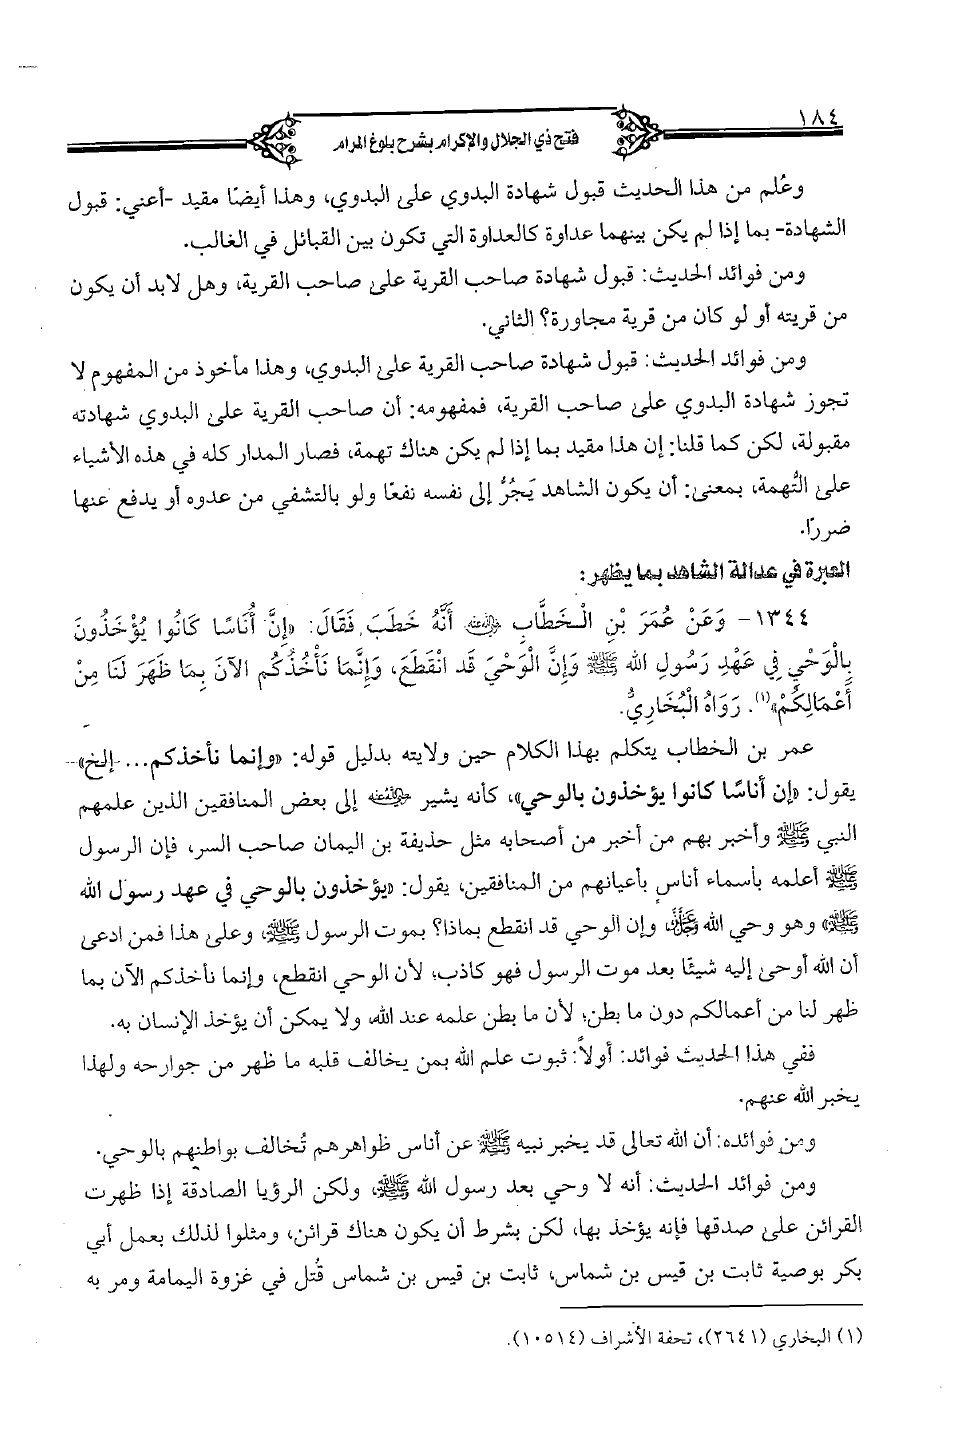 ١٨٤
فتح ذي الجلال والإكرام بشرح بلوغ المرام
وعُلم من هذا الحديث قبول شهادة البدوي على البدوي، وهذا أيضًا مقيد -أعني: قبول
الشهادة- بما إذا لم يكن بينهما عداوة كالعداوة التي تكون بين القبائل في الغالب.
ومن فوائد الحديث: قبول شهادة صاحب القرية على صاحب القرية، وهل لابد أن يكون
من قريته أو لو كان من قرية مجاورة؟ الثاني.
ومن فوائد الحديث: قبول شهادة صاحب القرية على البدوي، وهذا مأخوذ من المفهوم لا
تجوز شهادة البدوي على صاحب القرية، فمفهومه: أن صاحب القرية على البدوي شهادته
مقبولة، لكن كما قلنا: إن هذا مقيد بما إذا لم يكن هناك تهمة، فصار المدار كله في هذه الأشياء
على التُّهمة، بمعنى: أن يكون الشاهد يَجُرُّ إلى نفسه نفعًا ولو بالتشفي من عدوه أو يدفع عنها
ضررًا.
العبرة في عدالة الشاهد بما يظهر:
١٣٤٤- وَعَنْ عُمَرَ بْنِ الْخَطَّابِ رضي الله عنه أَنَّهُ خَطَبَ فَقَالَ: «إِنَّ أُنَاسًا كَانُوا يُؤْخَذُونَ
بِالْوَحْيِ فِي عَهْدِ رَسُولِ الله ﷺ وَإِنَّ الْوَحْيَ قَد انْقَطَعَ، وَإِنَّمَا نَأْخُذُكُم الآنَ بِمَا ظَهَرَ لَنَا مِنْ
أَعْمَالِكُمْ»(١). رَوَاهُ الْبُخَارِيُّ.
عمر بن الخطاب يتكلم بهذا الكلام حين ولايته بدليل قوله: «وإنما نأخذكم... إلخ»
يقول: «إن أناسًا كانوا يؤخذون بالوحي»، كأنه يشير رضي الله عنه إلى بعض المنافقين الذين علمهم
النبي ﷺ وأخبر بهم من أخبر من أصحابه مثل حذيفة بن اليمان صاحب السر، فإن الرسول
ﷺ أعلمه بأسماء أناس بأعيانهم من المنافقين، يقول: «يؤخذون بالوحي في عهد رسول الله
ﷺ» وهو وحي الله عز وجل، وإن الوحي قد انقطع بماذا؟ بموت الرسول ﷺ، وعلى هذا فمن ادعى
أن الله أوحى إليه شيئًا بعد موت الرسول فهو كاذب؛ لأن الوحي انقطع، وإنما نأخذكم الآن بما
ظهر لنا من أعمالكم دون ما بطن؛ لأن ما بطن علمه عند الله، ولا يمكن أن يؤخذ الإنسان به.
ففي هذا الحديث فوائد: أولاً: ثبوت علم الله بمن يخالف قلبه ما ظهر من جوارحه ولهذا
يخبر الله عنهم.
ومن فوائده: أن الله تعالى قد يخبر نبيه ﷺ عن أناس ظواهرهم تُخالف بواطنهم بالوحي.
ومن فوائد الحديث: أنه لا وحي بعد رسول الله ﷺ، ولكن الرؤيا الصادقة إذا ظهرت
القرائن على صدقها فإنه يؤخذ بها، لكن بشرط أن يكون هناك قرائن، ومثلوا لذلك بعمل أبي
بكر بوصية ثابت بن قيس بن شماس، ثابت بن قيس بن شماس قُتل في غزوة اليمامة ومر به
(١) البخاري (٢٦٤١)، تحفة الأشراف (١٠٥١٤).